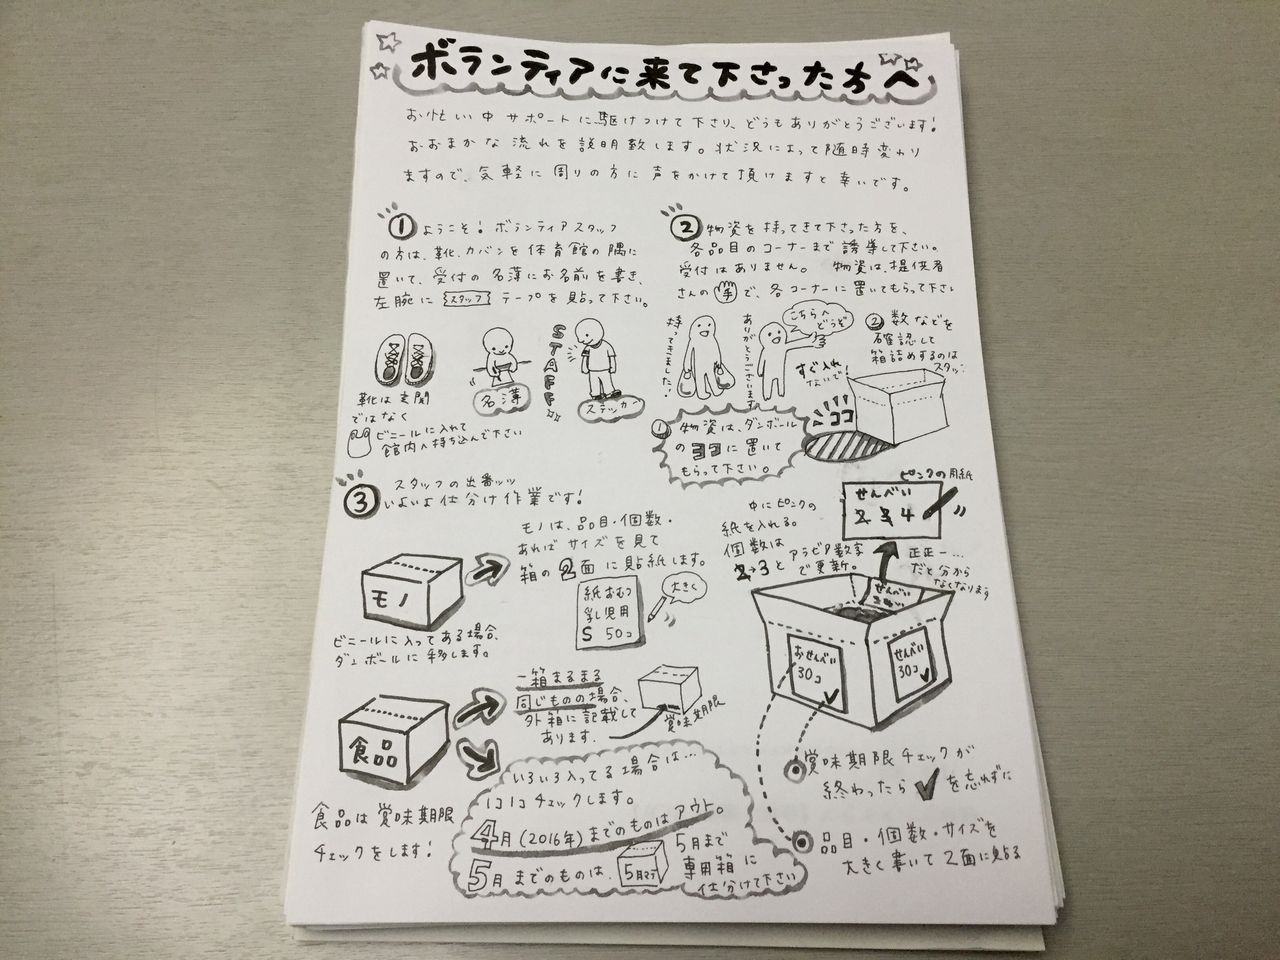 ボランティアに来て下さった方へ
お忙しい中サポートに駆けつけて下さり、どうもありがとうございます!
おおまかな流れを説明致します。状況によって随時変わり
ますので、気軽に周りの方に声をかけて頂けますと幸いです。
① ようこそ!ボランティアスタッフ
の方は、靴、カバンを体育館の隅に
置いて、受付の名簿にお名前を書き、
左腕に スタッフ テープを貼って下さい。
靴は玄関
ではなく
ビニールに入れて
館内へ持ち込んで下さい
名簿
STAFF
ステッカー
② 物資を持ってきて下さった方を、
各品目のコーナーまで誘導して下さい。
受付はありません。 物資は、提供者
さんの手で、各コーナーに置いてもらって下さい
持ってきました!
ありがとうございます
こちらへ
どうぞ
② 数などを
確認して
箱詰めするのは
スタッフ
すぐ入れ
ないで!
ココ
① 物資は、ダンボール
のココに置いて
もらって下さい。
③ スタッフの出番ッッ
いよいよ仕分け作業です!
モノ
モノは、品目・個数・
あればサイズを見て
箱の2面に貼紙します。
紙おむつ
乳児用
S 50コ
大きく
ビニールに入ってある場合、
ダンボールに移します。
食品
一箱まるまる
同じものの場合、
外箱に記載して
あります。
賞味期限
食品は賞味期限
チェックをします!
いろいろ入ってる場合は…
1コ1コチェックします。
4月(2016年)までのものはアウト。
5月までのものは、
5月まで
5月まで
専用箱に
仕分けて下さい
中にピンクの
紙を入れる。
個数は
2→3とアラビア数字
で更新。
ピンクの用紙
せんべい
2 3 4
正正一…
だと分から
なくなります
せんべい
おせんべい
30コ
せんべい
30コ
賞味期限チェックが
終わったら✓を忘れずに
品目・個数・サイズを
大きく書いて2面に貼る